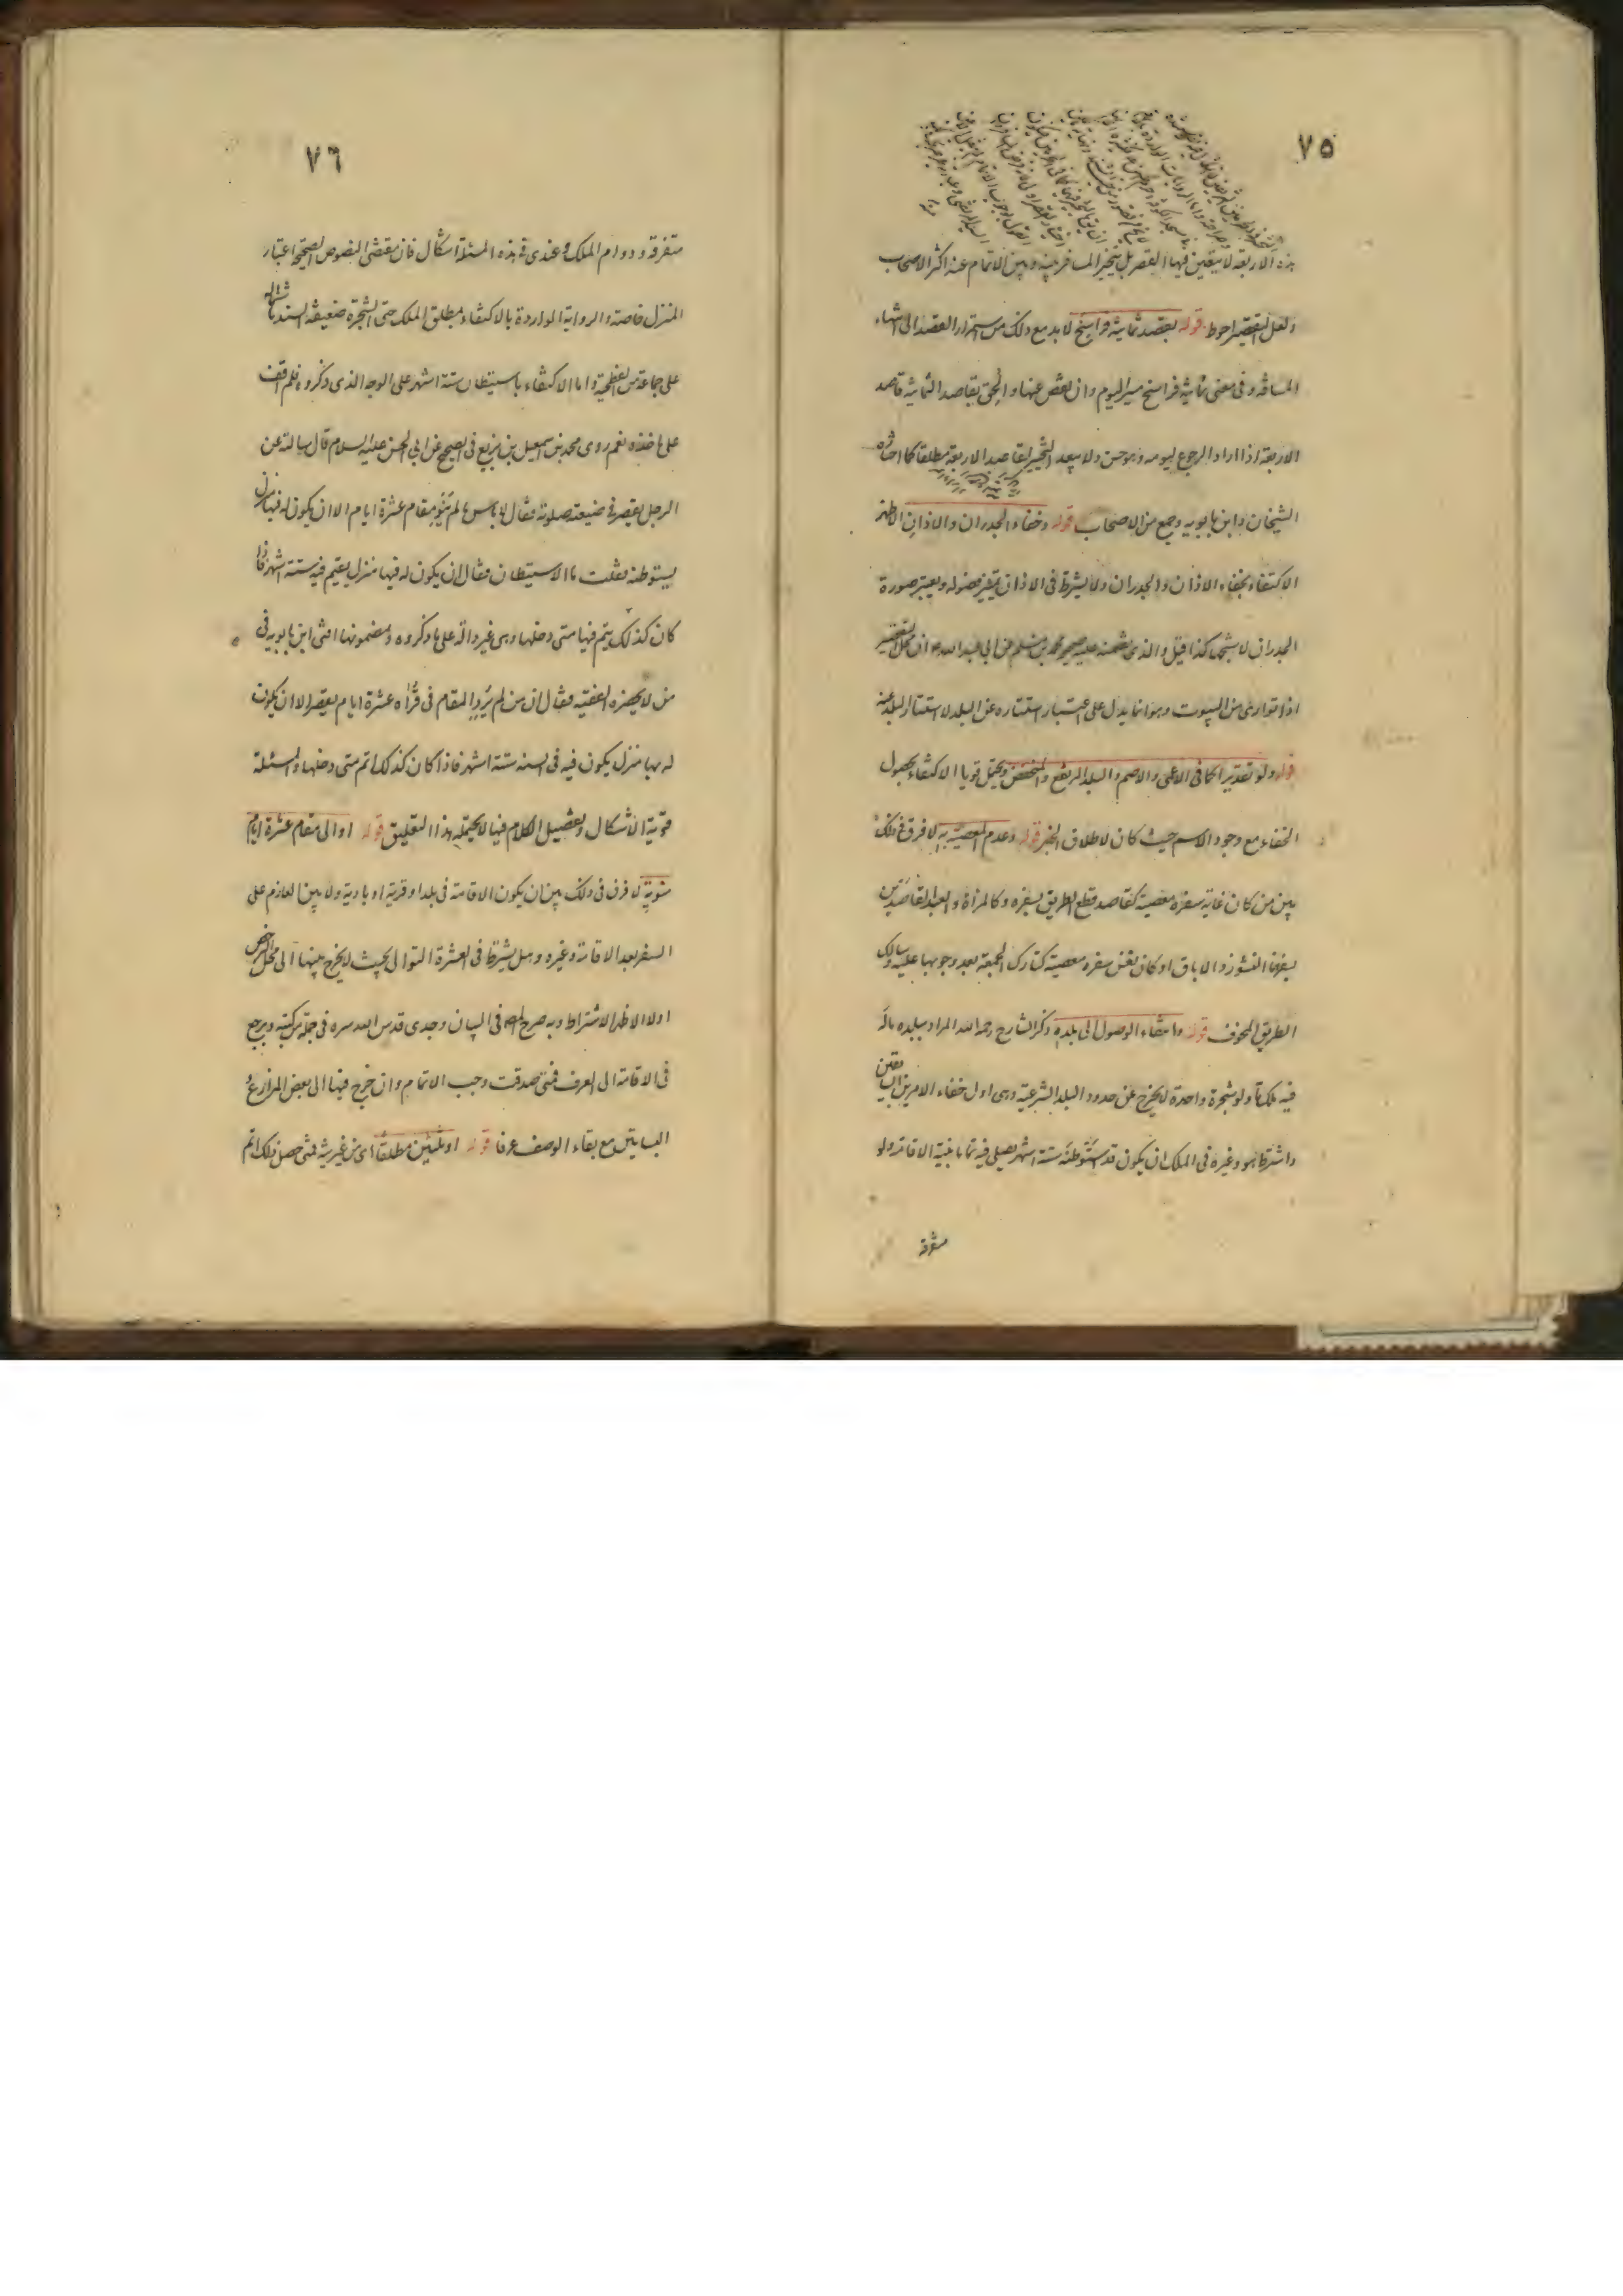 ٧٥
هذه الاربعة لا يتعين فيها القصر بل يتخير المسافر بينه وبين الاتمام عند اكثر الاصحاب
ولعل التقصير احوط قوله بقصد ثمانية فراسخ لا بد مع ذلك من استمرار القصد الى انتهاء
المسافة وفى معنى ثمانية فراسخ مسير اليوم وان نقص عنها والحق بقاصد الثمانية قاصد
الاربعة اذا اراد الرجوع ليومه وهو حسن ولا يبعد التخيير لقاصد الاربعة مطلقا كما اختاره
الشيخان وابن بابويه وجمع من الاصحاب قوله وخفاء الجدران والاذان الاظهر
الاكتفاء بخفاء الاذان والجدران ولا يشترط فى الاذان تميز فصوله ويعتبر صورة
الجدران لا شبحها كذا قيل والذى تضمنته صحيحة محمد بن مسلم عن ابى عبد الله ان محل التقصير
اذا توارى من البيوت وهو انما يدل على اعتبار استتاره عن البلد لا استتار البلد عنه
قوله ولو تقديرا كما فى الاعمى والاصم والبلد المرتفع والمنخفض ويحتمل قويا الاكتفاء بحصول
الخفاء مع وجود الاسم حيث كان لاطلاق الخبر قوله وعدم المعصية به لا فرق فى ذلك
بين من كان غاية سفره معصية كقاصد قطع الطريق بسفره وكالمراة والعبد القاصدين
بسفرهما النشوز والاباق او كان نفس سفره معصية كتارك الجمعة بعد وجوبها عليه وسالك
الطريق المخوف قوله وانتفاء الوصول الى بلده ذكر الشارح رحمه الله المراد ببلده ماله
فيه ملك ما ولو شجرة واحدة لا يخرج عن حدود البلد الشرعية وهى اول خفاء الامرين السابقين
واشترط هو وغيره فى الملك ان يكون قد استوطنه ستة اشهر يصلى فيه تماما بنية الاقامة ولو
متفرقة
٧٦
متفرقة ودوام الملك وعندى فى هذه المسئلة اشكال فان مقتضى النصوص الصحيحة اعتبار
المنزل خاصة والرواية الواردة بالاكتفاء بمطلق الملك حتى الشجرة ضعيفة السند باشتماله
على جماعة من الفطحية واما الاكتفاء باستيطان ستة اشهر على الوجه الذى ذكروه فلم اقف
على ماخذه نعم روى محمد بن اسمعيل بن بزيع فى الصحيح عن ابى الحسن عليه السلام قال سالته عن
الرجل يقصر فى ضيعته صلوته فقال لا باس ما لم ينو مقام عشرة ايام الا ان يكون له فيها منزل
يستوطنه فقلت ما الاستيطان فقال ان يكون له فيها منزل يقيم فيه ستة اشهر فاذا
كان كذلك يتم فيها متى دخلها وهى غير دالة على ما ذكروه وبمضمونها افتى ابن بابويه فى
من لا يحضره الفقيه فقال ان من لم يرد المقام فى قراه عشرة ايام يقصر الا ان يكون
له بها منزل يكون فيه فى السنة ستة اشهر فاذا كان كذلك اتم متى دخلها والمسئلة
قوية الاشكال وتفصيل الكلام فيها لا يحتمله هذا التعليق قوله او الى مقام عشرة ايام
منوية لا فرق فى ذلك بين ان يكون الاقامة فى بلد او قرية او بادية ولا بين العازم على
السفر بعد الاقامة وغيره وهل يشترط فى العشرة التوالى بحيث لا يخرج بينها الى محل الترخص
اولا الاظهر الاشتراط وبه صرح المص فى البيان وجدى قدس الله سره فى جملة من كتبه ويرجع
فى الاقامة الى العرف فمتى صدقت وجب الاتمام وان خرج فيها الى بعض المزارع و
البساتين مع بقاء الوصف عرفا قوله او ثلثين مطلقا اى من غير نية فمتى حصل ذلك اتم